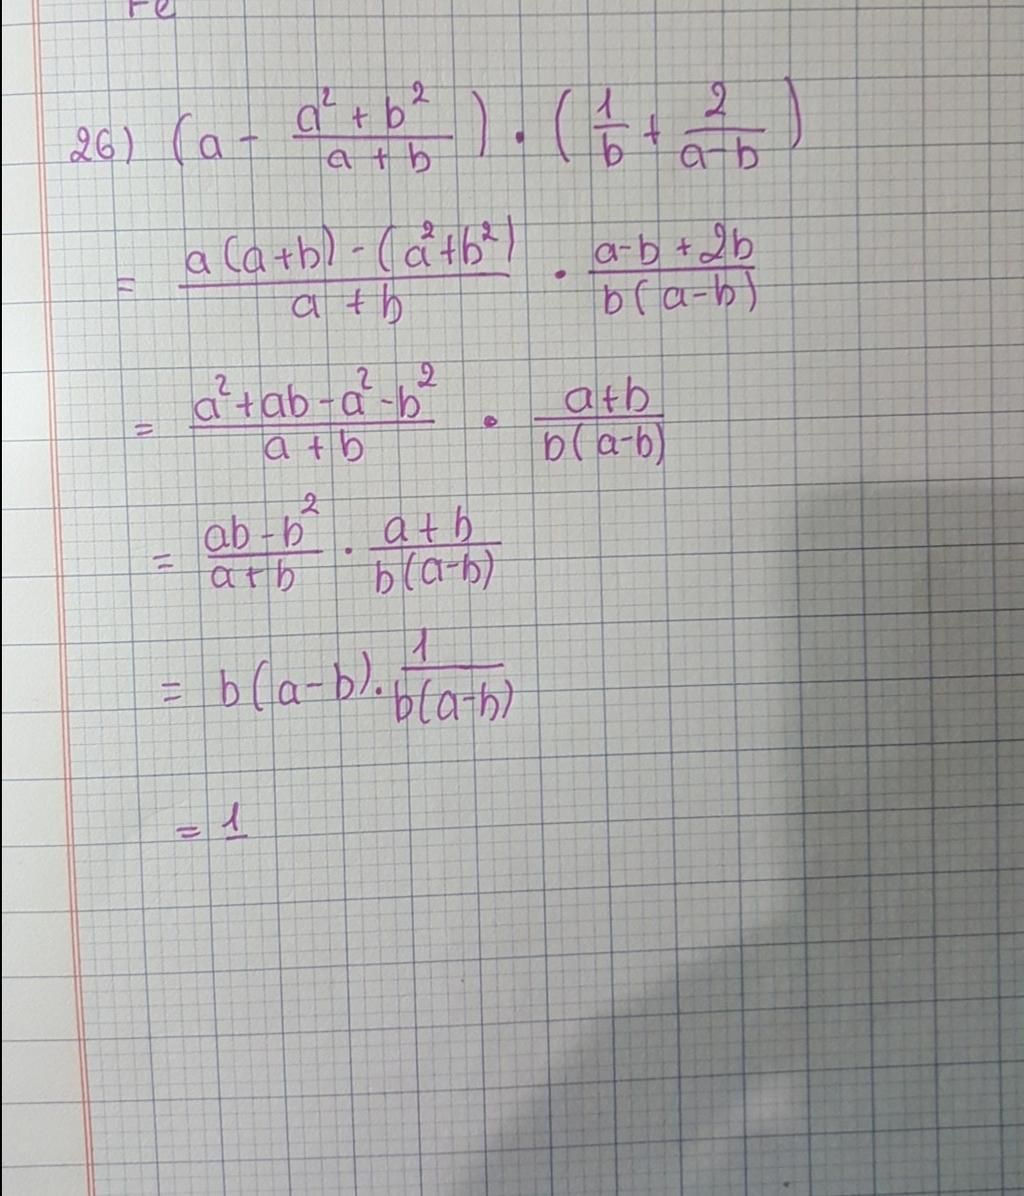 Fe
26) (a - (a² + b²)/(a + b)) · (1/b + 2/(a-b))
= (a(a+b) - (a²+b²))/(a + b) · (a-b + 2b)/(b(a-b))
= (a²+ab-a²-b²)/(a + b) · (a+b)/(b(a-b))
= (ab-b²)/(a+b) · (a+b)/(b(a-b))
= b(a-b) · 1/(b(a-b))
= 1